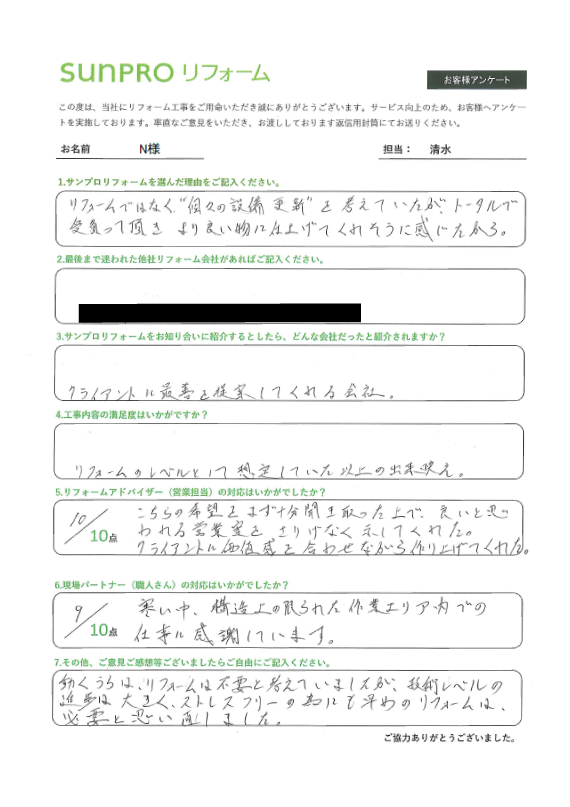 SUNPRO リフォーム
お客様アンケート
この度は、当社にリフォーム工事をご用命いただき誠にありがとうございます。サービス向上のため、お客様へアンケー
トを実施しております。率直なご意見をいただき、お渡ししております返信用封筒にてお送りください。
お名前 N様 担当： 清水
1.サンプロリフォームを選んだ理由をご記入ください。
リフォームではなく、“個々の設備更新”を考えていたが、トータルで
受負って頂き より良い物に仕上げてくれそうに感じたから。
2.最後まで迷われた他社リフォーム会社があればご記入ください。
3.サンプロリフォームをお知り合いに紹介するとしたら、どんな会社だったと紹介されますか？
クライアントに最善を提案してくれる会社。
4.工事内容の満足度はいかがですか？
リフォームのレベルとして想定していた以上の出来映え。
5.リフォームアドバイザー（営業担当）の対応はいかがでしたか？
10/10点
こちらの希望をまず十分聞き取った上で、良いと思
われる営業案をさりげなく示してくれた。
クライアントに価値感を合わせながら作り上げてくれた。
6.現場パートナー（職人さん）の対応はいかがでしたか？
9/10点
寒い中、構造上の限られた作業エリア内での
仕事に感謝しています。
7.その他、ご意見ご感想等ございましたらご自由にご記入ください。
動くうちは、リフォームは不要と考えていましたが、技術レベルの
進歩は大きく、ストレスフリーの為にも早めのリフォームは、
必要と思い直しました。
ご協力ありがとうございました。